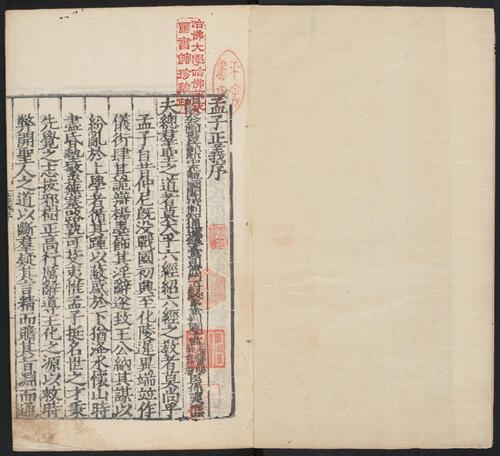 哈佛大學哈佛燕京
圖書館珍藏印
孟子正義序
夫總羣聖之道者莫大乎六經紹六經之教者莫尚乎
孟子自昔仲尼旣没戰國初興至化陵遲異端並作
儀衍肆其詭辯楊墨飾其淫辭遂致王公納其謀以
紛亂於上學者循其踵以蔽惑於下猶洚水懷山時
盡昏墊繁蕪塞路孰可芟夷惟孟子挺名世之才秉
先覺之志拔邪樹正高行厲辭導王化之源以救時
弊開聖人之道以斷羣疑其言精而贍其旨淵而通